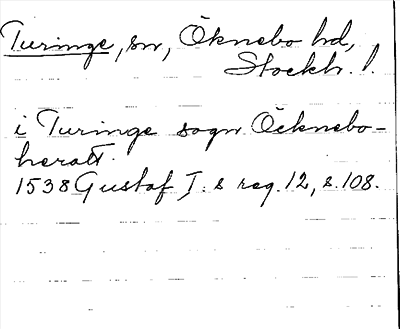 Turinge, sn, Öknebo hd,
Stockh. l.
i Turinge sogn Öeknebo-
heratt.
1538 Gustaf I:s reg. 12, s. 108.